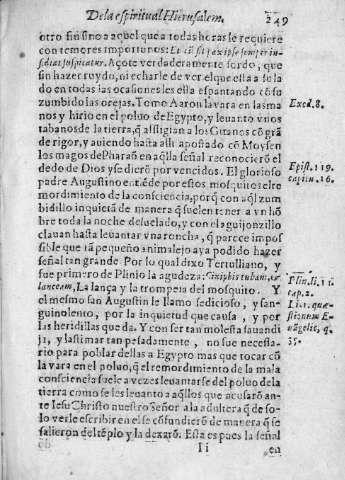 De la espiritual Hierusalem. 249
otro fin sino a aquel que a todas horas le requiere
con temores importunos: Et cũ sit rex ipse semper in-
sidias suspicatur. Açote verdaderamente sordo, que
sin hazer ruydo, ni echarle de ver el que ella a se la
do en todas las ocasiones le es ella espantando cõ su
zumbido las orejas. Tomo Aaron la vara en las ma
nos y hirio en el poluo de Egypto, y leuanto vnos
tabanos de la tierra, q̃ affligian a los Gitanos cõ grã
de rigor, y auiendo hasta alli apostado cõ Moysen
los magos de Pharaõ en aq̃lla señal reconocierõ el
dedo de Dios y se dierõ por vencidos. El glorioso
padre Augustino entiẽde por estos mosquitos el re
mordimiento de la consciencia, porq̃ con aq̃l zum
bidillo inquietã de manera q̃ suelen tener a vn hõ
bre toda la noche desuelado, y con el aguijonzillo
clauan hasta leuantar vna roncha, q̃ parece impos
sible que tã pequeño animalejo aya podido hazer
señal tan grande. Por lo qual dixo Tertulliano, y
fue primero de Plinio la agudeza: Ciniphis tubam, et
lanceam, La lança y la trompeta del mosquito. Y
el mesmo san Augustin le llamo sedicioso, y san-
guinolento, por la inquietud que causa, y por
las heridillas que da. Y con ser tan molesta sauandi
ja, y lastimar tan pesadamente, no fue necessa-
rio para poblar dellas a Egypto mas que tocar cõ
la vara en el poluo, q̃ el remordimiento de la mala
consciencia suele a vezes leuantarse del poluo de la
tierra como se les leuanto a aq̃llos que acusarõ an-
te Iesu Christo nuestro Señor a la adultera q̃ de so-
lo verle escribir en el se cõfundierõ de manera q̃ se
salieron del tẽplo y la dexarõ. Esta es pues la señal
Ii en
Exod. 8.
Epist. 119.
capitu. 16.
Plin. li. 11.
cap. 2.
Li. 1. quæ-
stionum E-
uãgelic. q.
35.